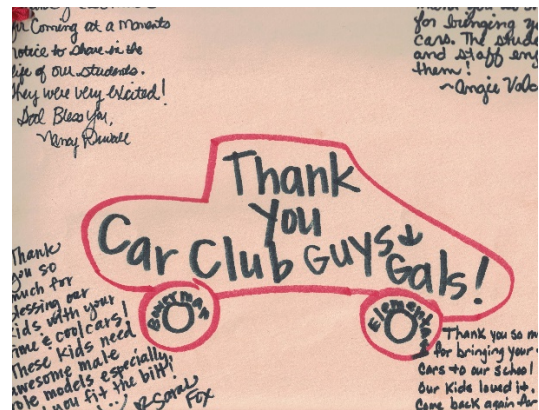 for Coming at a moments
notice to share in the
life of our students.
They were very excited!
God Bless You,
Nancy
for bringing
cars. The
and staff
them!
~Angie
Thank
You
Car Club Guys &
Gals!
Bowerman
Elementary
Thank
you so
much for
blessing our
kids with your
time & cool cars!
These kids need
awesome male
role models especially,
you fit the bill!
Sarai
Fox
Thank you so
for bringing your
Cars to our school
Our Kids loved it.
Come back again for